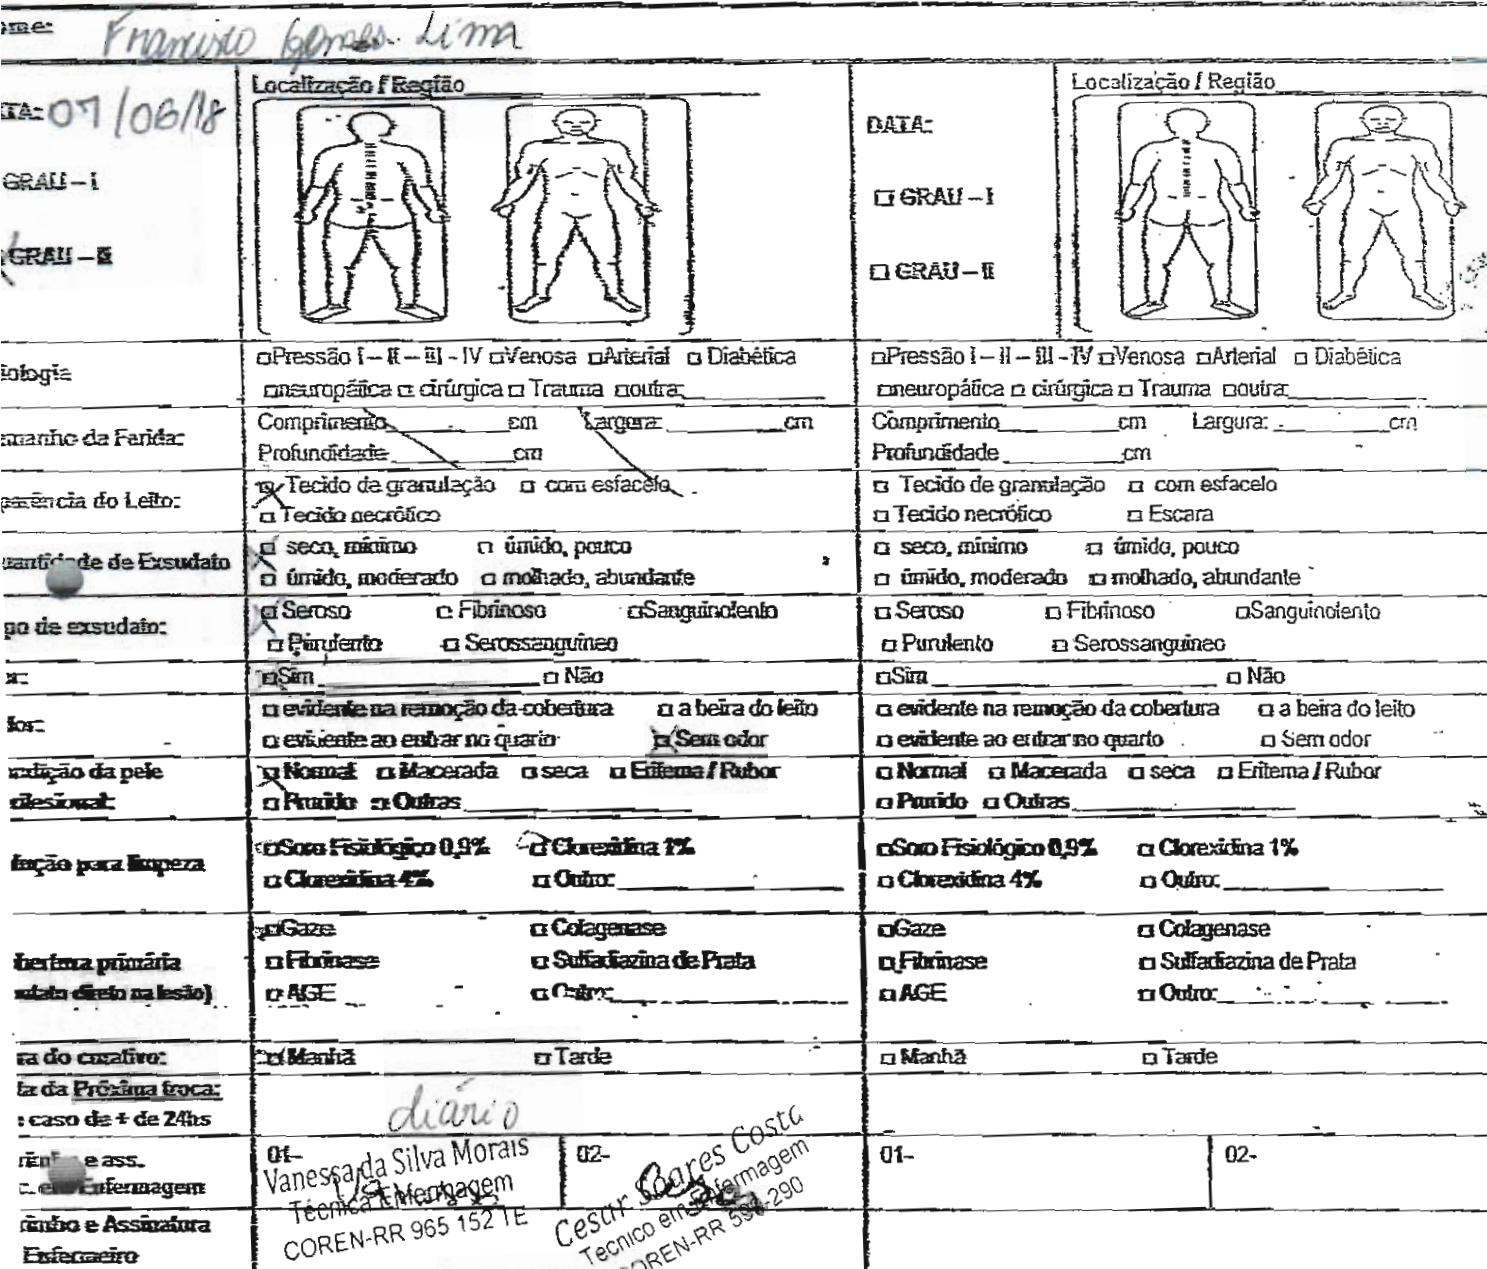 ome: Francisco Gomes Lima
TA: 07/06/18
Localização / Região
DATA:
Localização / Região
GRAU – I
GRAU – II
□ GRAU – I
□ GRAU – II
iologia
□Pressão I – II – III - IV □Venosa □Arterial □ Diabética
□neuropática □ cirúrgica □ Trauma □outra:
□Pressão I – II – III - IV □Venosa □Arterial □ Diabética
□neuropática □ cirúrgica □ Trauma □outra:
amanho da Farida:
Comprimento cm Largura: cm
Profundidade cm
Comprimento cm Largura: cm
Profundidade cm
parência do Leito:
□ Tecido de granulação □ com esfacelo
□ Tecido necrótico
□ Tecido de granulação □ com esfacelo
□ Tecido necrótico □ Escara
uantidade de Exsudato
□ seco, mínimo □ úmido, pouco
□ úmido, moderado □ molhado, abundante
□ seco, mínimo □ úmido, pouco
□ úmido, moderado □ molhado, abundante
po de exsudato:
□ Seroso □ Fibrinoso □Sanguinolento
□ Purulento □ Serossanguíneo
□ Seroso □ Fibrinoso □Sanguinolento
□ Purulento □ Serossanguíneo
□Sim □ Não
□Sim □ Não
dor:
□ evidente na remoção da cobertura □ a beira do leito
□ evidente ao entrar no quarto □ Sem odor
□ evidente na remoção da cobertura □ a beira do leito
□ evidente ao entrar no quarto □ Sem odor
ndição da pele
rilesional:
□ Normal □ Macerada □ seca □ Eritema / Rubor
□ Prurido □ Outras
□ Normal □ Macerada □ seca □ Eritema / Rubor
□ Prurido □ Outras
lução para limpeza
□Soro Fisiológico 0,9% □ Clorexidina 1%
□ Clorexidina 4% □ Outro:
□Soro Fisiológico 0,9% □ Clorexidina 1%
□ Clorexidina 4% □ Outro:
bertura primária
ntato direto na lesão)
□Gaze □ Colagenase
□ Fibrinase □ Sulfadiazina de Prata
□ AGE □ Outro:
□Gaze □ Colagenase
□ Fibrinase □ Sulfadiazina de Prata
□ AGE □ Outro:
ra do curativo:
□ Manhã □ Tarde
□ Manhã □ Tarde
ta da Próxima troca:
: caso de + de 24hs
diário
e ass.
Enfermagem
01-
Vanessa da Silva Morais
Técnica Enfermagem
COREN-RR 965 152 TE
02-
Cesar Soares Costa
Tecnico em Enfermagem
COREN-RR
01-
02-
rimbo e Assinatura
Enfermeiro